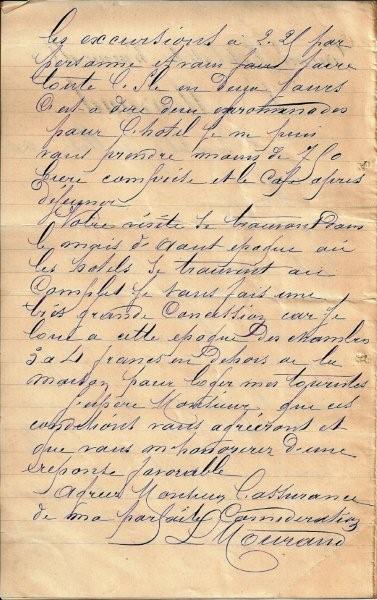 les excursions à 2.25 par
personne et vous faire faire
toute l'Ile en deux jours
C'est à dire deux promenades
pour l'hotel je ne peux
vous prendre moins de 7.50
bière comprise et le Café apres
déjeuner
Votre visite se trouvant dans
le mois d'Aout epoque où
les hotels se trouvent au
Complet je vous fais une
très grande Concession car je
loue a cette epoque des chambres
3 a 4 francs en dehors de la
maison pour loger mes touristes
J'espère Monsieur que ces
conditions vous agréeront et
que vous m'honorerez d'une
réponse favorable
Agréez Monsieur l'assurance
de ma parfaite Considération